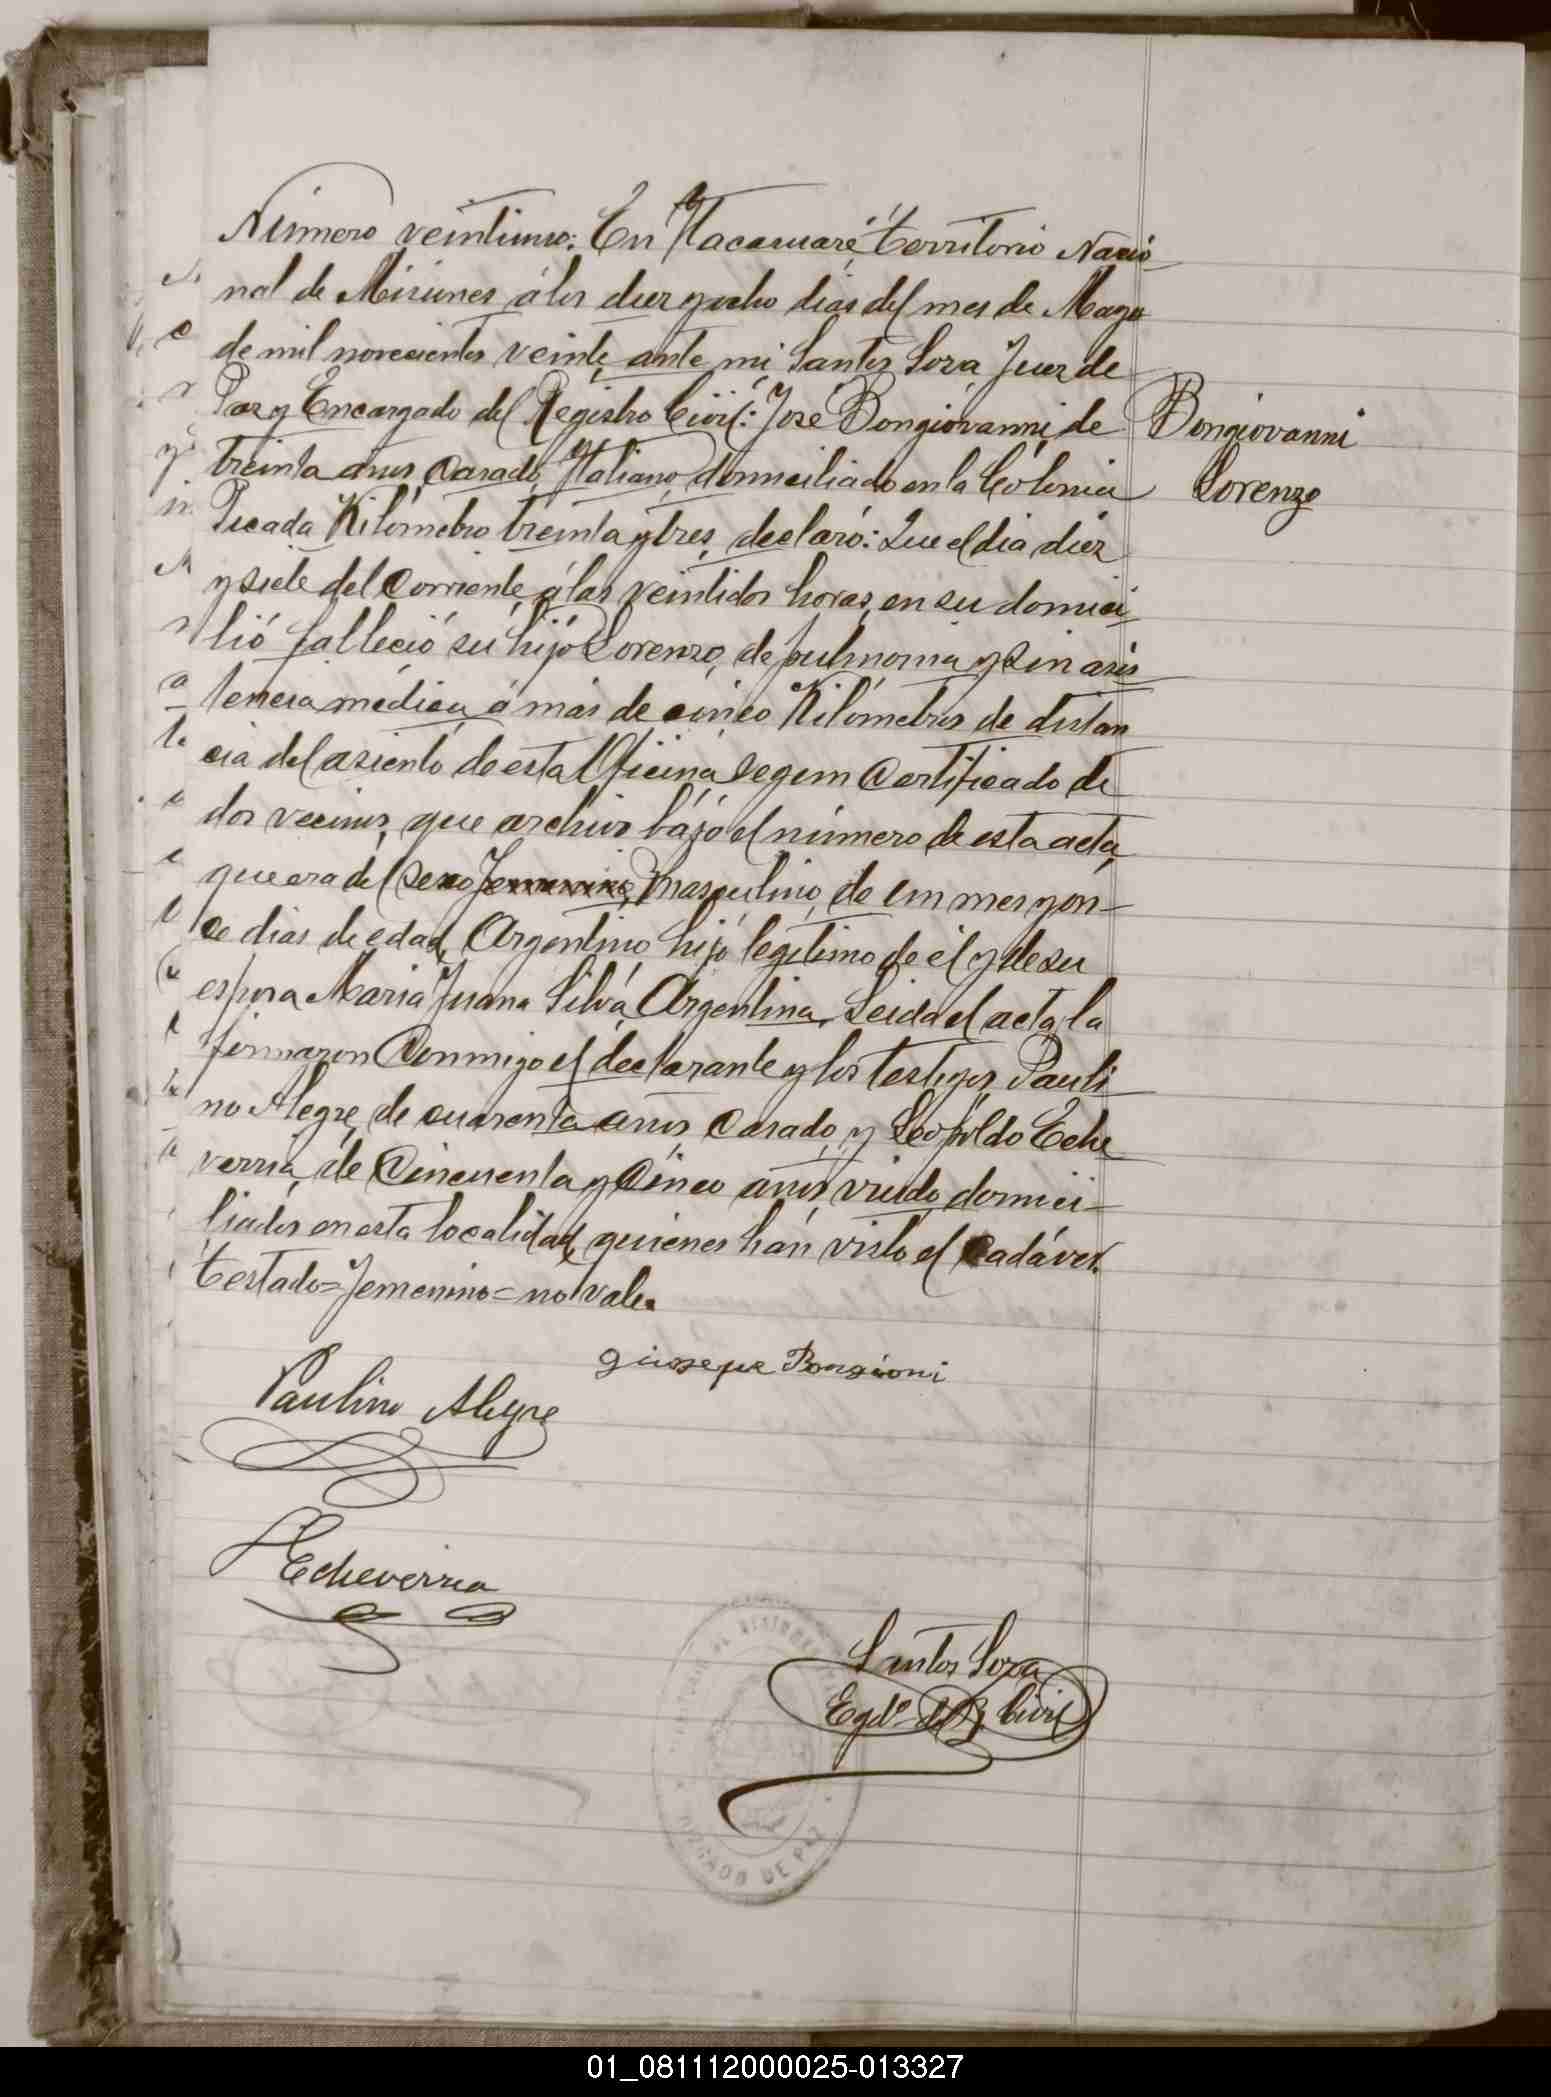 Número veintiuno: En Itacaruaré, territorio Nacio-
nal de Misiones á los diez y ocho dias del mes de Mayo
de mil novecientos veinte, ante mi Santos Soza, Juez de
Paz y Encargado del Registro Civil: José Bongiovanni, de
treinta años, Casado, Italiano, domiciliado en la Colonia
Picada Kilómetro treinta y tres, declaró: Que el dia diez
y siete del Corriente, á las veintidos horas, en su domici-
lió falleció su hijo Lorenzo, de pulmonia y sin asis-
tencia médica, á más de cinco Kilómetros de distan
cia del asiento de esta Oficina, segun Certificado de
dos vecinos, que archivo bajo el número de esta acta,
que era del sexo femenino, masculino, de un mes y on-
ce dias de edad, Argentino, hijo legitimo de él y de su
esposa Maria Juana Silva, Argentina. Leida el acta, la
firmaron Conmigo el declarante y los testigos, Pauli-
no Alegre, de cuarenta años, Casado, y Leopoldo Eche
verria, de Cincuenta y Cinco años, viudo, domici-
liados en esta localidad, quienes hán visto el Cadáver.
testado=femenino=no vale.
Bongiovanni
Lorenzo
Giuseppe Bongioni
Paulino Alegre
Echeverria
Santos Soza
Egdo. del R. Civil
JUZGADO DE PAZ
01_081112000025-013327